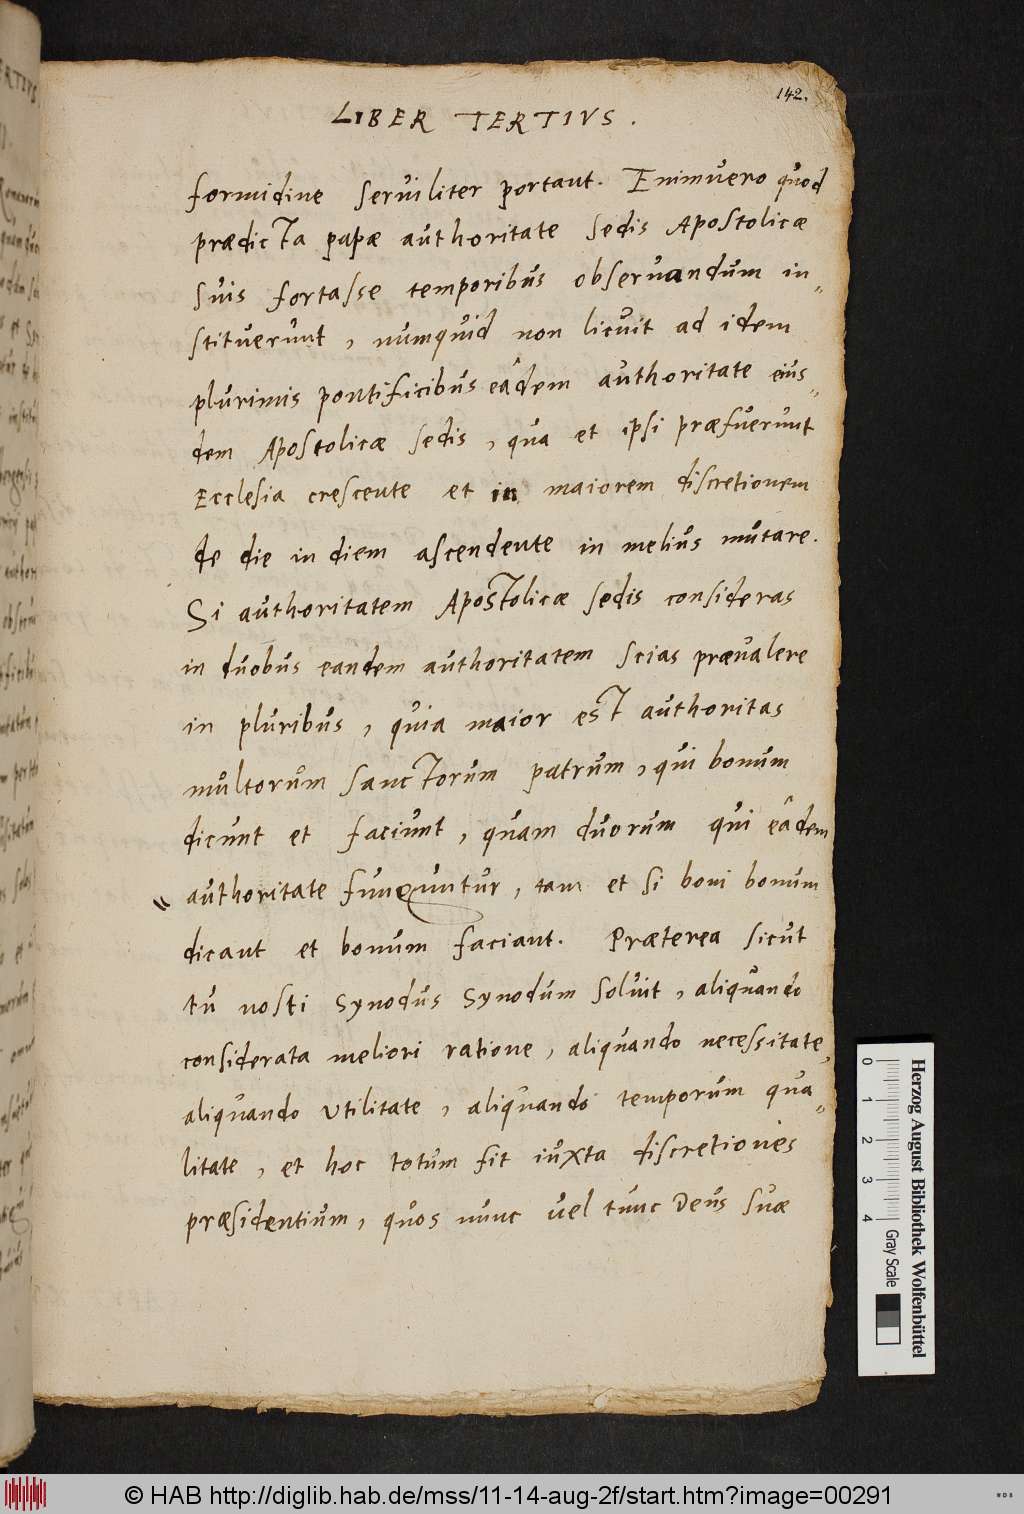 142.
LIBER TERTIVS.
formidine serviliter portant. Enimvero quod
prædicta papæ authoritate sedis Apostolicæ
suis fortasse temporibus observandum in„
stituerunt, numquid non licuit ad idem
plurimis pontificibus eâdem authoritate eius„
dem Apostolicæ sedis, qua et ipsi præfuerunt
Ecclesia crescente et in maiorem discretionem
de die in diem ascendente in melius mutare.
Si authoritatem Apostolicæ sedis consideras
in duobus eandem authoritatem scias prævalere
in pluribus, quia maior est authoritas
multorum sanctorum patrum, qui bonum
dicunt et faciunt, quam duorum qui eâdem
authoritate funguntur, tam et si boni bonum
dicant et bonum faciant. Præterea sicut
tu nosti synodus synodum soluit, aliquando
considerata meliori ratione, aliquando necessitate,
aliquando utilitate, aliquando temporum qua„
litate, et hoc totum fit iuxta discretiones
præsidentium, quos nunc vel tunc Deus suæ
Herzog August Bibliothek Wolfenbüttel
0 1 2 3 4 Gray Scale
© HAB http://diglib.hab.de/mss/11-14-aug-2f/start.htm?image=00291